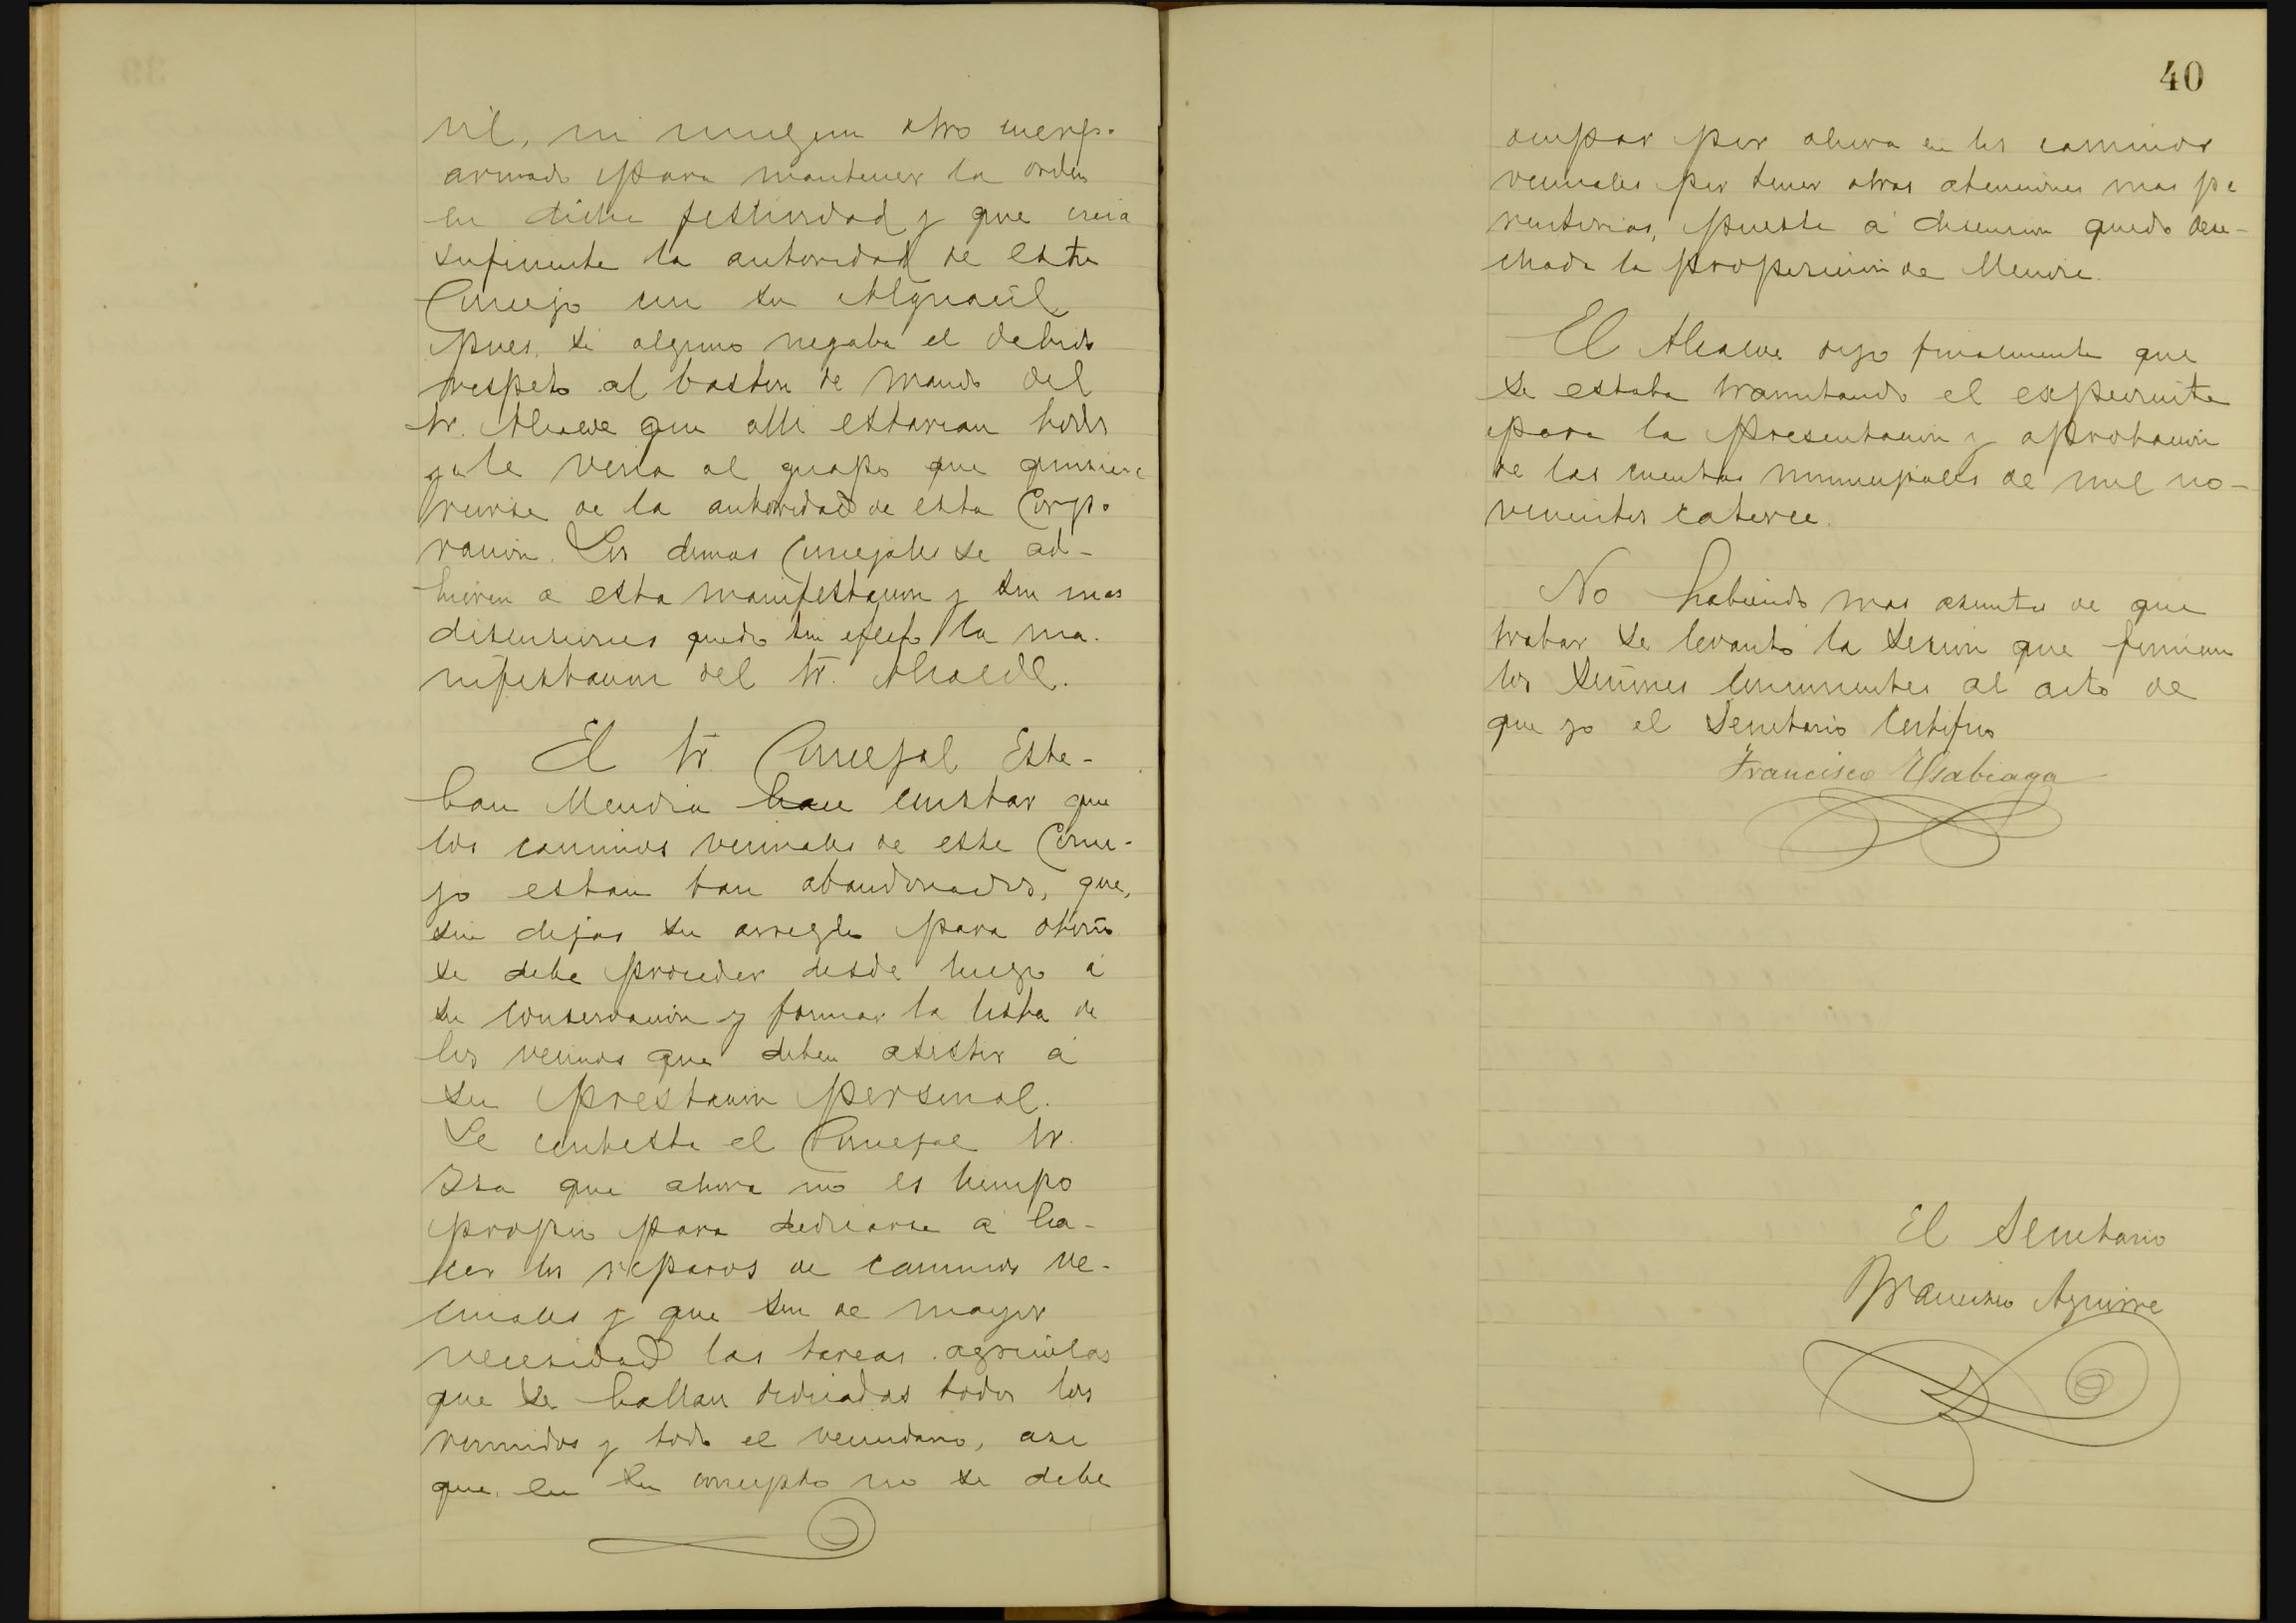 vil, ni ningun otro cuerpo
armado para mantener la orden
en dicha festividad y que creia
suficiente la autoridad de este
Concejo con su Alguacil
pues, si alguno negaba el debido
respeto al baston de mando del
Sr. Alcalde que alli estarian todos
ya le veria al guapo que quisiera
reirse de la autoridad de esta Corpo
racion. Los demas Concejales se ad-
hieren a esta manifestacion y sin mas
discusiones quedo sin efecto la ma-
nifestacion del Sr. Alcalde.
El Sr. Concejal Este-
ban Mendia hace constar que
los caminos vecinales de este Conce-
jo estan tan abandonados, que,
sin dejar su arreglo para otoño
se debe proceder desde luego á
su conservacion y formar la lista de
los vecinos que deben asistir á
su prestacion personal.
Le contesta el Concejal Sr.
Isa que ahora no es tiempo
propio para dedicarse a ha-
cer los reparos de caminos ve-
cinales y que son de mayor
necesidad las tareas agricolas
que se hallan dedicadas todos los
reunidos y todo el vecindario, asi
que, en su concepto no se debe
40
ocupar por ahora en los caminos
vecinales por tener otras atenciones mas pe
rentorias, puesta á discusion quedo dese-
chada la proposicion de Mendia.
El Alcalde dijo finalmente que
se estaba tramitando el expediente
para la presentacion y aprobacion
de las cuentas municipales de mil no-
vecientos catorce.
No habiendo mas asuntos de que
tratar se levantó la sesion que firman
los Señores concurrentes al acto de
que yo el Secretario certifico
Francisco Usabiaga
El Secretario
Francisco Aguirre